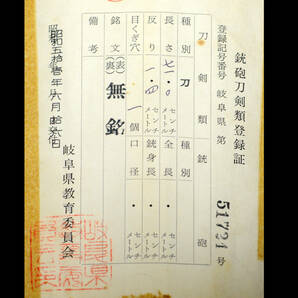 銃砲刀剣類登録証
登録記号番号 岐阜県 第 51721 号
刀剣類 銃砲
種別 刀 種別
長さ 七一・〇 センチメートル 全長 センチメートル
反り 一・四 センチメートル 銃身長 センチメートル
目くぎ穴 一個 口径 センチメートル
銘文 (表) (裏) 無銘
備考
昭和五拾壱年六月拾六日
岐阜県教育委員会